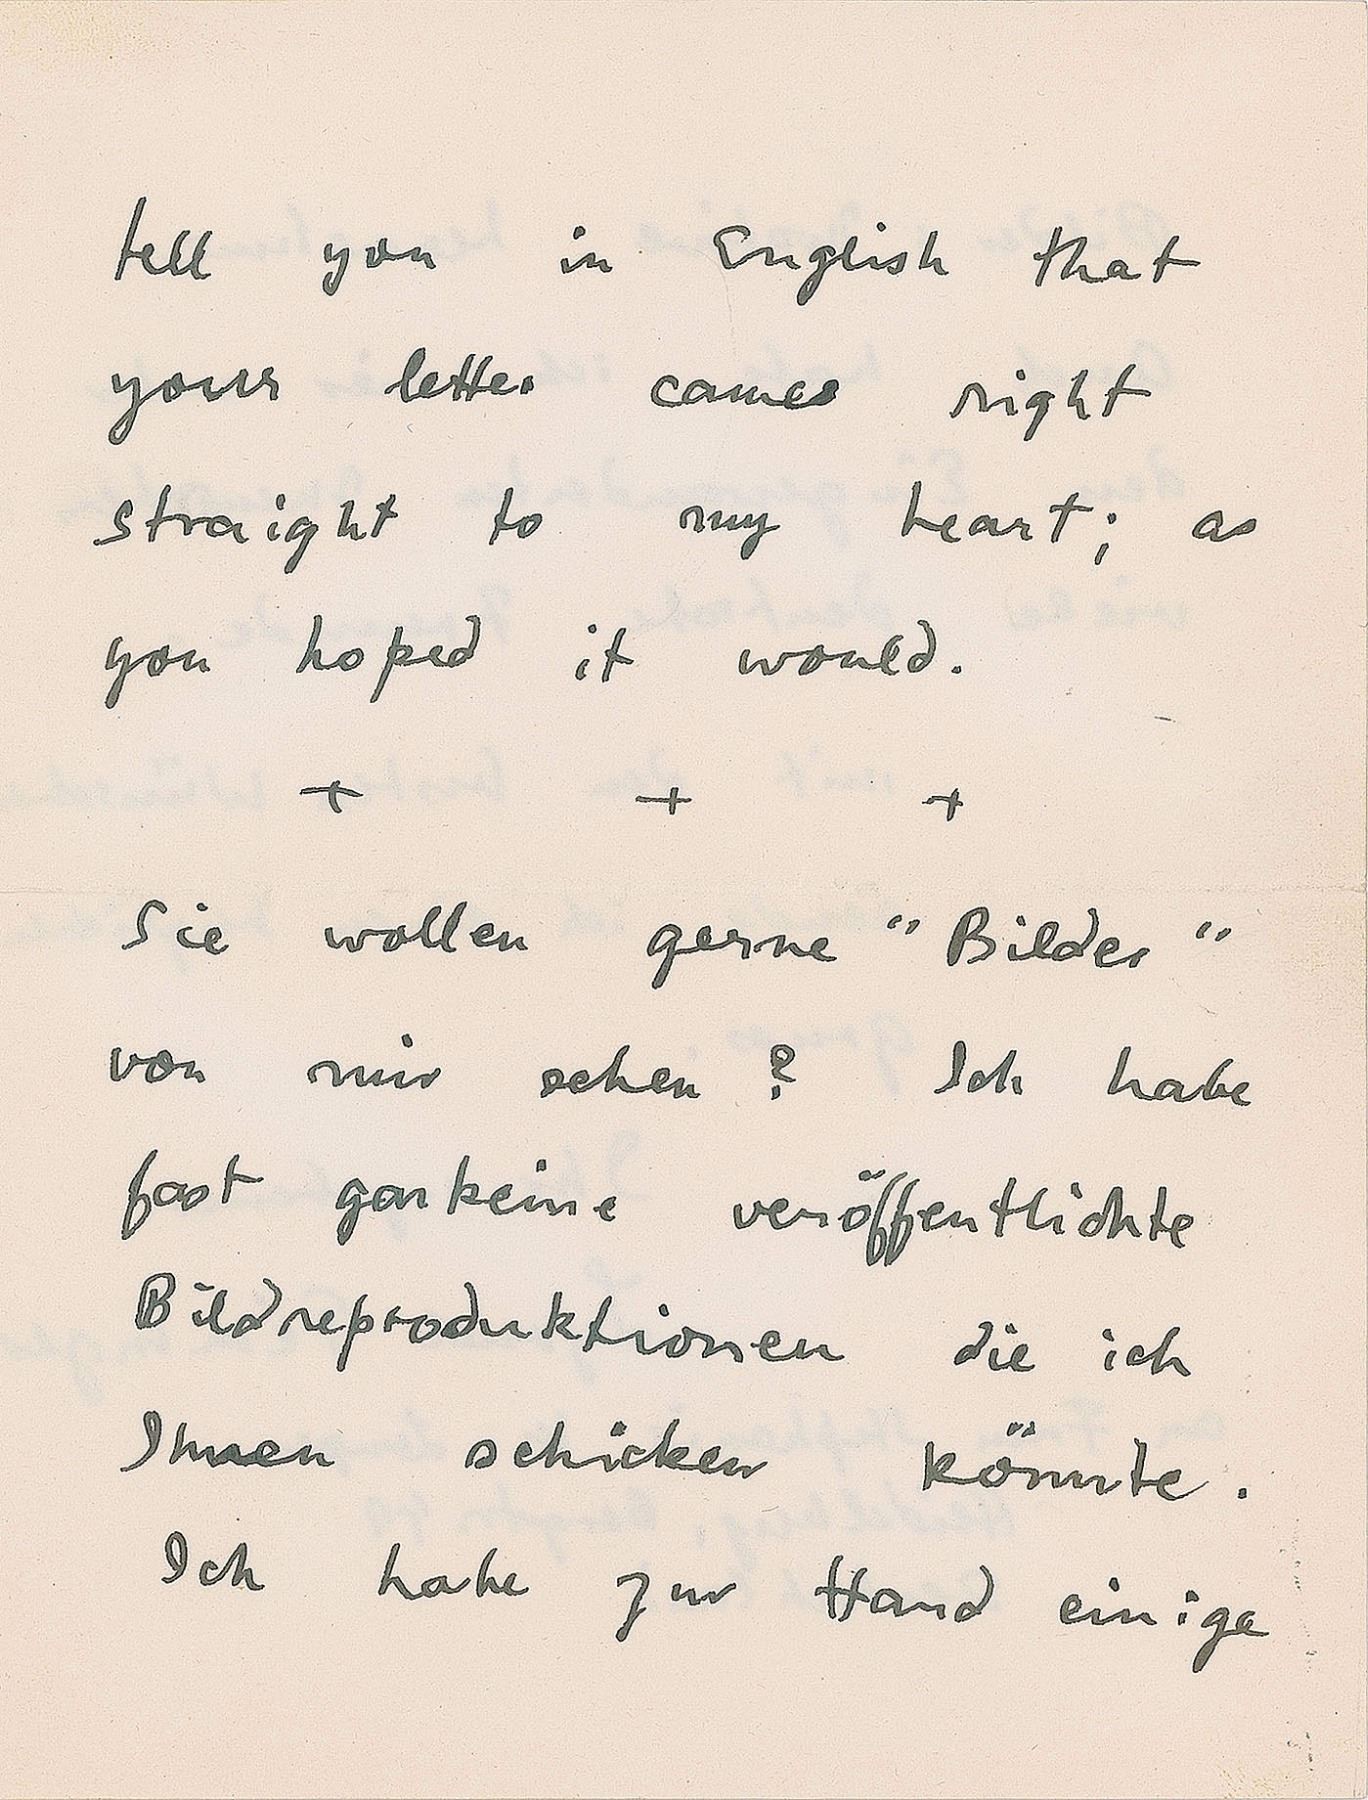 tell you in English that
your letter cames right
straight to my heart; as
you hoped it would.
+ + +
Sie wollen gerne "Bilder"
von mir sehen? Ich habe
fast garkeine veröffentlichte
Bildreproduktionen die ich
Ihnen schicken könnte.
Ich habe zur Hand einige